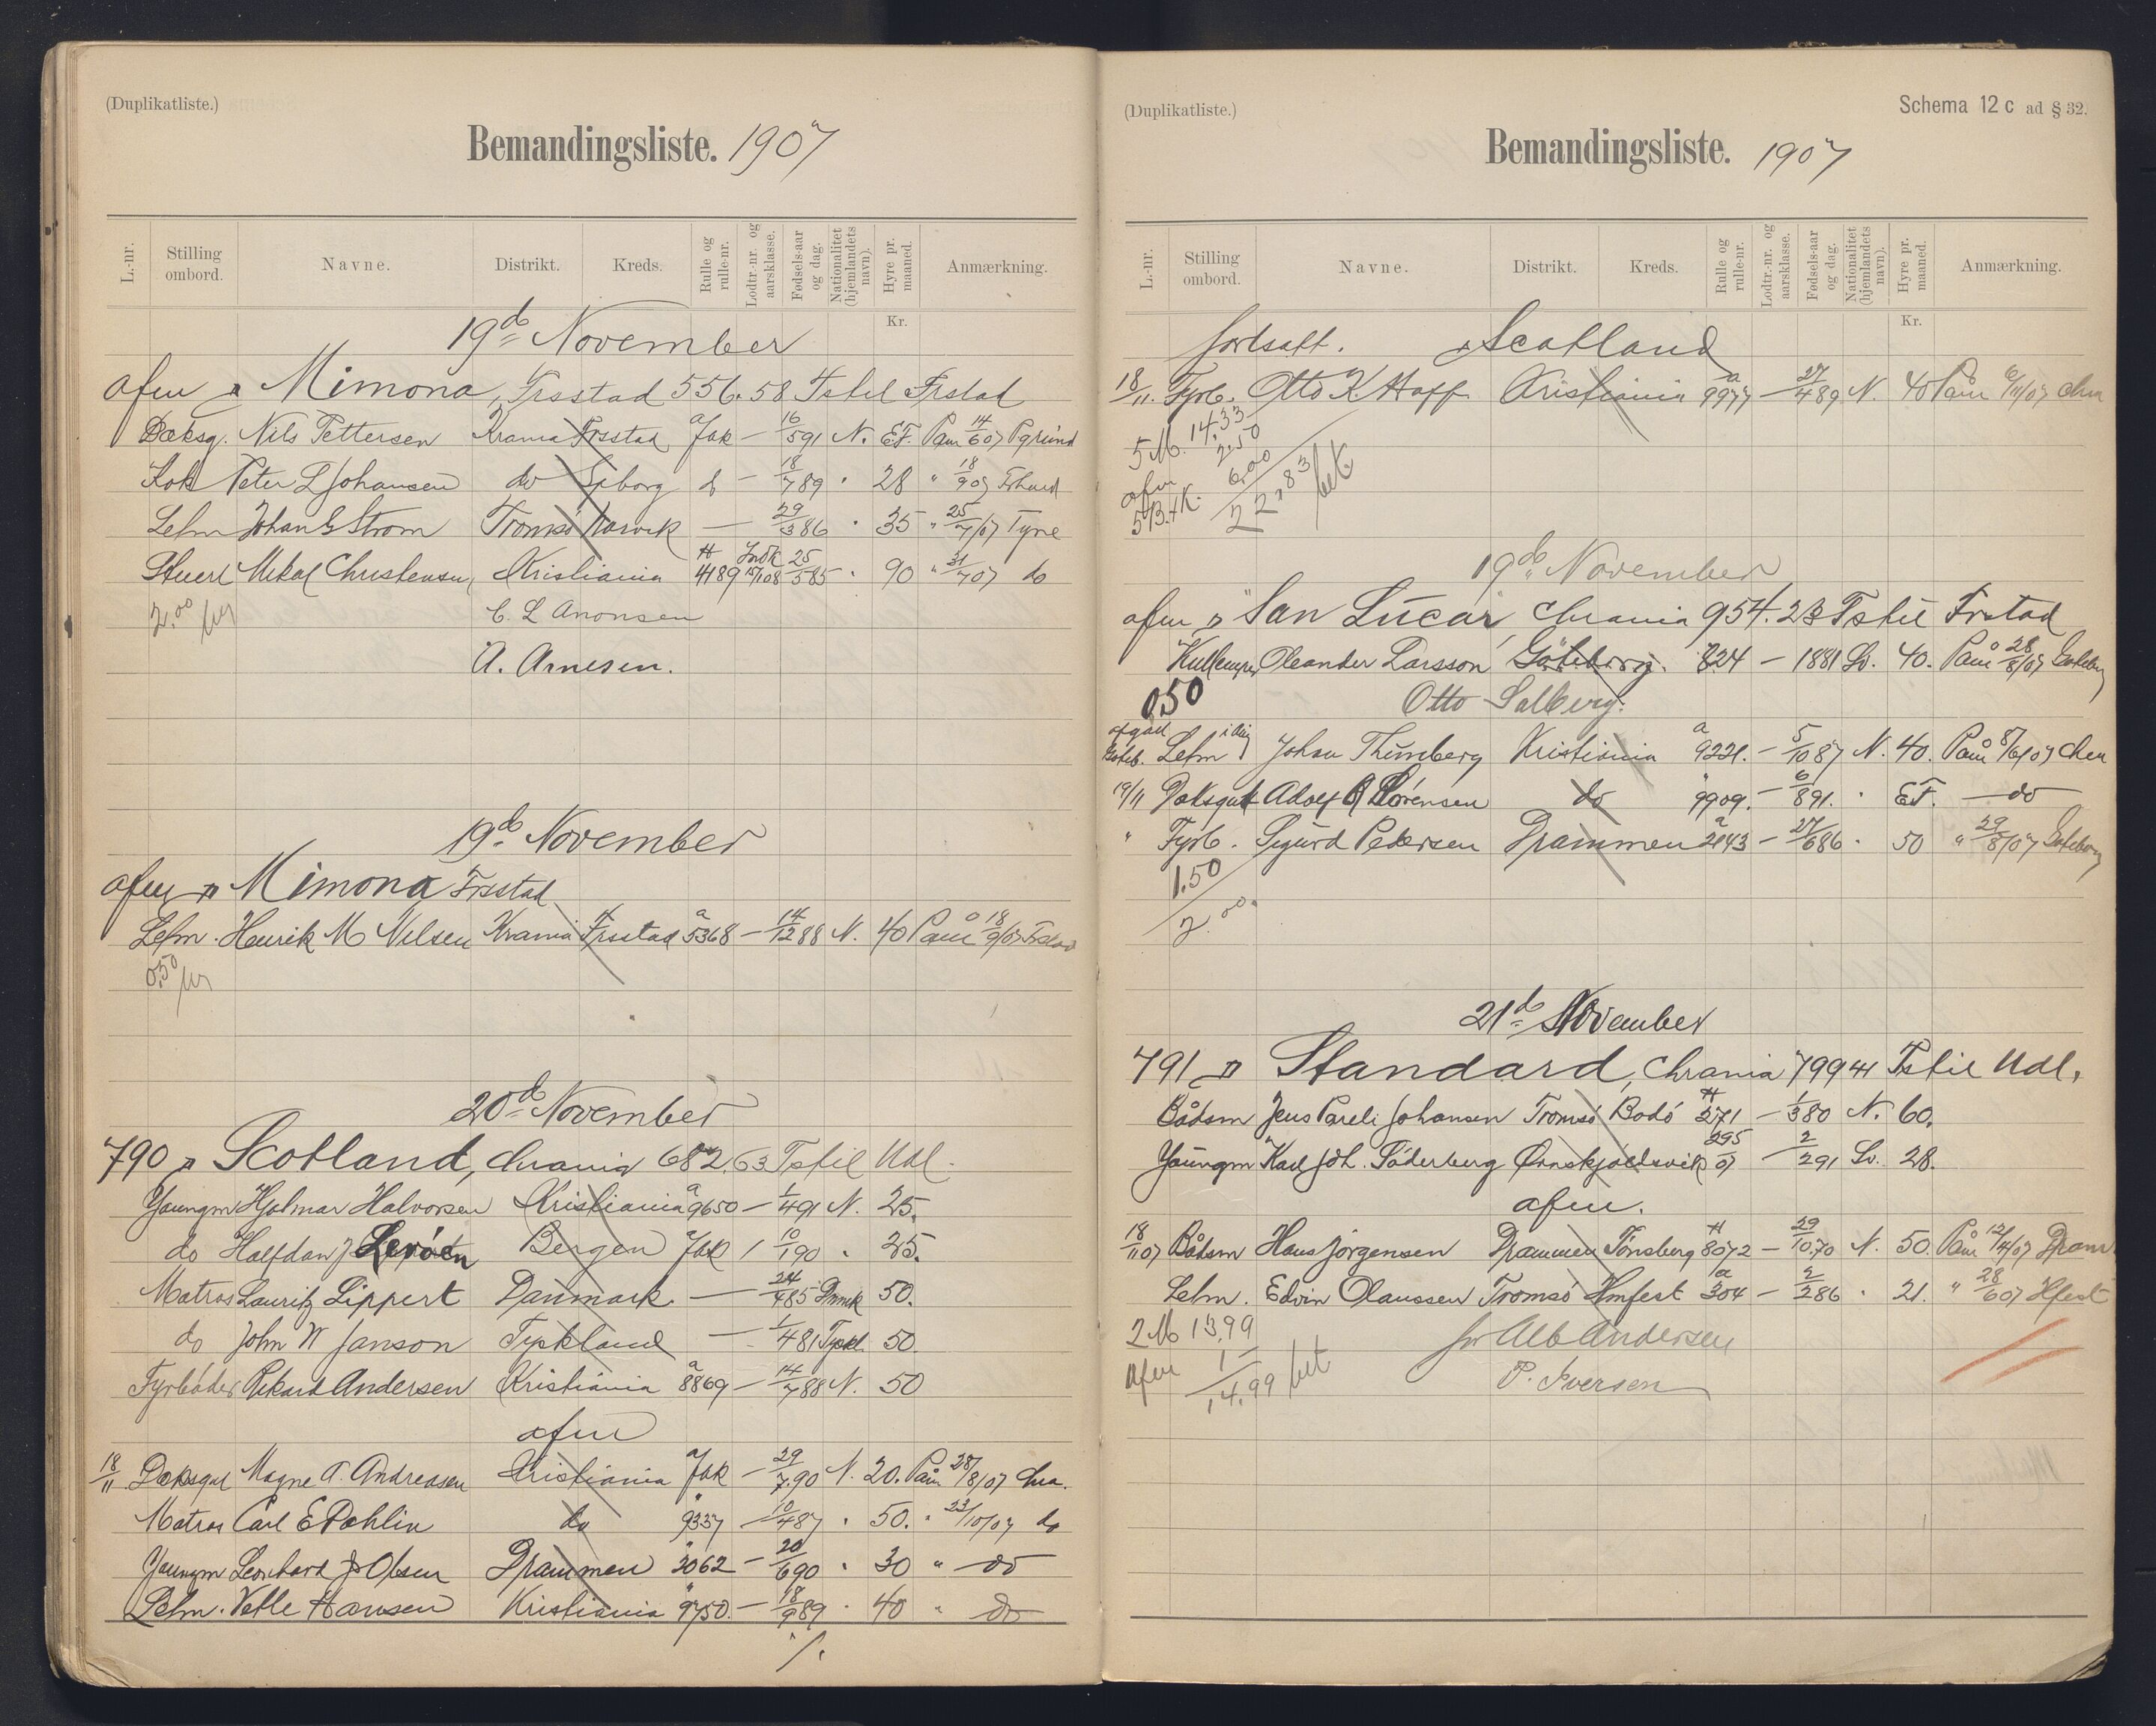 (Duplikatliste.)
Bemandingsliste. 1907
L.-nr.
Stilling ombord.
Navne.
Distrikt.
Kreds.
Rulle og rulle-nr.
Lodtr.-nr. og aarsklasse.
Fødsels-aar og dag.
Nationalitet (hjemlandets navn).
Hyre pr. maaned.
Anmærkning.
Kr.
19de November
afm D Mimona, Frsstad 556.58 Ts til Frstad
Dæksg. Nils Pettersen Krania Frsstad a Jak — 16/5 91 N. EF. Paam 14/6 07 Pgrund
Kok Peter L Johansen do Spborg d — 18/7 89 " 28 " 18/9 07
Letm Johan G Strøm Tromsö Narvik — 29/3 86 " 35 " 25/7/07 Tyne
Stuert Mikal Christensen Kristiania H 4189 25/5 85 " 90 " 31/7 07 do
2.00
C. L Anonsen
A. Arnesen.
19de November
afm D Mimona Frsstad
Letm. Henrik M Nilsen Krania Frsstad a 5368 — 14/12 88 N. 40 Paam 18/9/07 Frstad
0.50
20de November
790 D Scotland, Chrania 682,63 Ts til Udl.
Jaungm Hjalmar Halvorsen Kristiania a 9650 — 1/4 91 N. 25.
do Halfdan J Bergen Jak / 10/1 90 " 25.
Matros Lauritz Lippert Danmark — 24/4 85 Dnmk 50.
do John W Janson Tyskland — 1/4 81 Tyskl 50.
Fyrböder Rikard Andersen Kristiania a 8869 — 14/7 88 N. 50
afm
18/11 Dæksgut Magne A. Andreasen Kristiania a Jak — 29/7 90 N. 20. Paam 28/8/07 Chra.
Matros Carl E Dahlin do " 9337 — 10/4 87 " 50. " 23/10/07 do
Jaungm Leonhard J Olsen Drammen " 2062 — 20/6 90 " 30 " — do
Letm. Vetle Hansen Kristiania " 9750. — 18/9 89 " 40 " do
./.
(Duplikatliste.)
Schema 12 c ad § 32.
Bemandingsliste. 1907
L.-nr.
Stilling ombord.
Navne.
Distrikt.
Kreds.
Rulle og rulle-nr.
Lodtr.-nr. og aarsklasse.
Fødsels-aar og dag.
Nationalitet (hjemlandets navn).
Hyre pr. maaned.
Anmærkning.
Kr.
fortsatt. D Scotland
18/11. Fyrb. Otto K. Hoff Kristiania a 9977 — 27/4 89 N. 40 Paam 6/11/07 Chra
5 M. 14.33
2.50
afm 6.00
22,83 bet.
19de November
afm D "San Lucar" Chrania 954.23 Ts til Frstad
Kullemp. Oleander Larsson Göteborg. 824 — 1881 Sv. 40. Paam 28/8/07 Göteborg
0.50 Otto Salberg.
Letm Johan Thunberg Kristiania a 9221. — 5/10 87 N. 40. Paam 8/6/07 Chra
19/11 Dæksgut Adolf A Sörensen do " 9909. — 6/8 91. " EF. — do
" Fyrb. Sigurd Pedersen Drammen a 2143 — 27/6 86 " 50 " 29/8/07 Göteborg
1.50
2.00.
21de November
791 D Standard, Chrania 799 41 Ts til Udl.
Bådsm Jens Pareli Johansen Tromsö Bodö H 271 — 1/3 80 N. 60.
Jaungm Karl Joh. Söderberg Örnskjöldsvik 295/07 — 2/2 91 Sv. 28.
afm.
18/11 07 Bådsm Hans Jörgensen Drammen Tönsberg H 8072 — 29/10 70 N. 50. Paam 12/4/07 Dram
Letm. Edvin Olaussen Tromsö Hmfest a 304 — 2/2 86 " 21. " 28/6 07 Hfest
2 M 13,99 for Alb Andersen
afm 1 — P. Iversen
14.99 bet